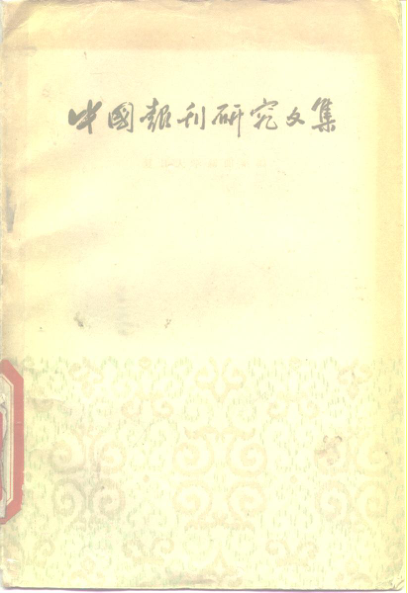 中國報刊研究文集